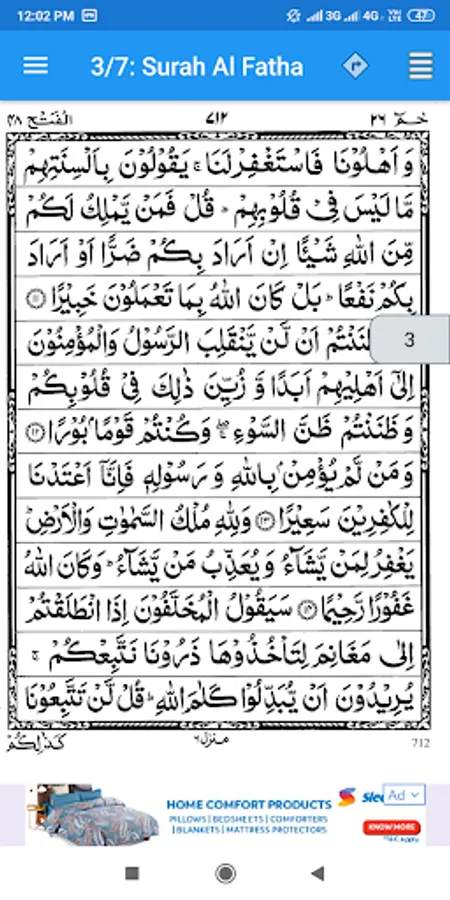 12:02 PM
3G 4G VoLTE 47
3/7: Surah Al Fatha
الفتح ٤٨
٧١٢
حٰمٓ ٢٦
وَ اَهْلُوْنَا فَاسْتَغْفِرْ لَنَا ۚ يَقُوْلُوْنَ بِاَلْسِنَتِهِمْ
مَّا لَيْسَ فِىْ قُلُوْبِهِمْ ؕ قُلْ فَمَنْ يَّمْلِكُ لَكُمْ
مِّنَ اللّٰهِ شَيْئًا اِنْ اَرَادَ بِكُمْ ضَرًّا اَوْ اَرَادَ
بِكُمْ نَفْعًا ؕ بَلْ كَانَ اللّٰهُ بِمَا تَعْمَلُوْنَ خَبِيْرًا ۝۱۱
نَنْتُمْ اَنْ لَّنْ يَّنْقَلِبَ الرَّسُوْلُ وَالْمُؤْمِنُوْنَ
3
اِلٰٓى اَهْلِيْهِمْ اَبَدًا وَّ زُيِّنَ ذٰلِكَ فِىْ قُلُوْبِكُمْ
وَ ظَنَنْتُمْ ظَنَّ السَّوْءِ ۖۚ وَكُنْتُمْ قَوْمًۢا بُوْرًا ۝۱۲
وَ مَنْ لَّمْ يُؤْمِنْۢ بِاللّٰهِ وَ رَسُوْلِهٖ فَاِنَّاۤ اَعْتَدْنَا
لِلْكٰفِرِيْنَ سَعِيْرًا ۝۱۳ وَلِلّٰهِ مُلْكُ السَّمٰوٰتِ وَالْاَرْضِ ؕ
يَغْفِرُ لِمَنْ يَّشَآءُ وَ يُعَذِّبُ مَنْ يَّشَآءُ ؕ وَكَانَ اللّٰهُ
غَفُوْرًا رَّحِيْمًا ۝۱۴ سَيَقُوْلُ الْمُخَلَّفُوْنَ اِذَا انْطَلَقْتُمْ
اِلٰى مَغَانِمَ لِتَاْخُذُوْهَا ذَرُوْنَا نَتَّبِعْكُمْ ۚ
يُرِيْدُوْنَ اَنْ يُّبَدِّلُوْا كَلٰمَ اللّٰهِ ؕ قُلْ لَّنْ تَتَّبِعُوْنَا
كَذٰلِكُمْ
منزل ٦
712
HOME COMFORT PRODUCTS
PILLOWS | BEDSHEETS | COMFORTERS
| BLANKETS | MATTRESS PROTECTORS
Ad
KNOW MORE